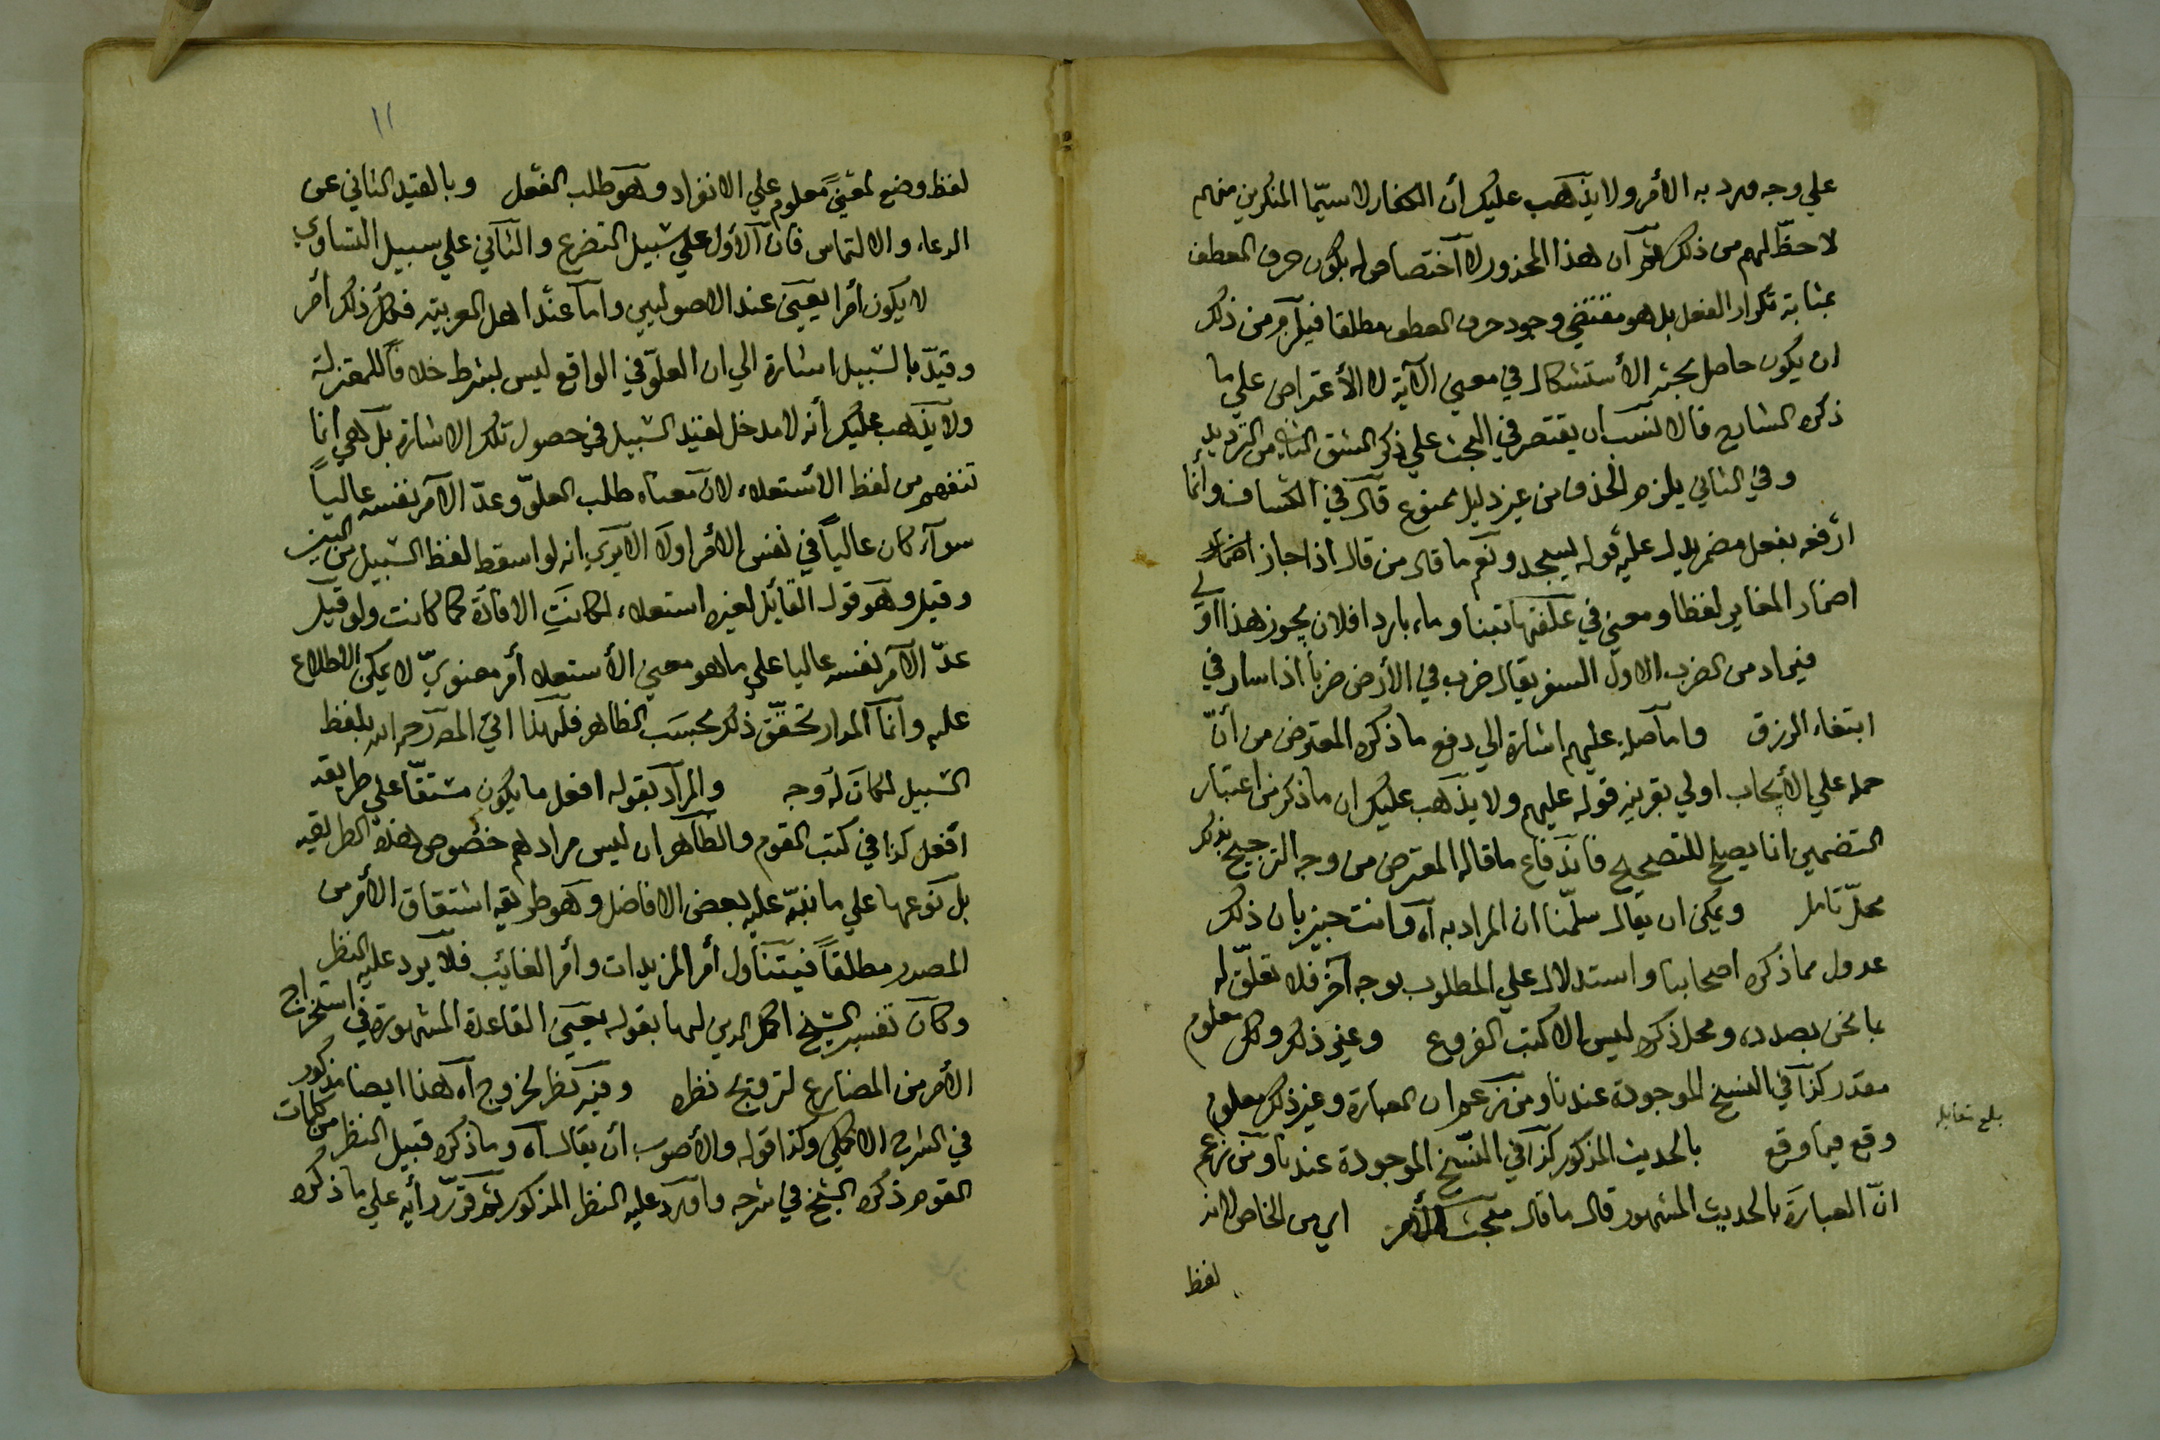 علي وجه ورد به الأمر ولا يذهب عليك أن الكفار لا سيّما المنكرين منهم
لا حظّ لهم من ذلك ثم آن هذا المحذور لا آختصاص له بكون حرف العطف
بمثابة تكرار الفعل بل هو مقتضي وجود حرف العطف مطلقا فيلزم من ذلك
ان يكون حاصل بحثه الأستشكال في معنى الآية لا الأعتراض علي ما
ذكره الشارح فالانسب ان يقتصر في البحث علي ذكر الشق الثاني من الترديد
وفي الثاني يلزم الحذف من غير دليل ممنوع قال في الكشاف وانما
ارفعه بفعل مضمر يدل عليه قوله يسجد ونعم ما قال من قال اذا جاز
اضمار المغاير لفظا ومعنى في علفتها تبنا وماء باردا فلان يجوز هذا اولي
فيراد من الضرب الاول السفر يقال ضرب في الأرض ضرباً اذا سار في
ابتغاء الرزق وامآ صل عليهم اشارة الي دفع ما ذكره المعترض من أنّ
حمله علي الأيجاب اولي بقرينه قوله عليهم ولا يذهب عليك ان ما ذكر من اعتبار
التضمين انما يصلح للتصحيح فاندفاع ما قاله المعترض من وجه الترجيح بذلك
محلّ تامل ويمكن ان يقال سلّمنا ان المراد به آه وانت خبير بان ذلك
عدول مما ذكره اصحابنا واستدلال علي المطلوب بوجه آخر فلا تعلّق له
بما نحن بصدده ومحل ذكره ليس الا كتب الفروع وغير ذلك وكل معلوم
مقدر كذا في النسخ الموجودة عندنا ومن زعم ان العبارة وغير ذلك معلوم
وقع فيما وقع بالحديث المذكور كذا في النسخ الموجودة عندنا ومن زعم
انّ العبارة بالحديث المشهور قال ما قال مبحث الأمر اي من الخاص لانه
لفظ
بلغ مقابله
١١
لفظ وضع لمعنىً معلوم علي الانفراد وهو طلب الفعل وبالقيد الثاني عن
الدعاء والالتماس فان الأول علي سبيل التضرع والثاني علي سبيل التساوي
لا يكون أمرا يعني عند الاصوليين واما عند اهل العربية فكل ذلك أمر
وقيّد بالسبيل اشارة الي ان العلوّ في الواقع ليس بشرط خلافاً للمعتزلة
ولا يذهب عليك أنه لا مدخل لقيد السبيل في حصول تلك الاشارة بل هي انما
تنفهم من لفظ الأستعلاء لان معناه طلب العلوّ وعدّ الآمر نفسه عالياً
سوآء كان عالياً في نفس الأمر اولا الا يري انه لو اسقط لفظ السبيل من البين
وقيل وهو قول القائل لغيره استعلاء لكانت الافادة كما كانت ولو قيل
عدّ الآمر نفسه عاليا علي ما هو معنى الأستعلاء أمر معنويّ لا يمكن الاطلاع
عليه وانما المدار تحقّق ذلك بحسب الظاهر فلهذا اتي المص رحمه الله بلفظ
السبيل لكان له وجه والمراد بقوله افعل ما يكون مشتقّا علي طريقه
افعل كذا في كتب القوم والظاهر ان ليس مرادهم خصوص هذه الطريقة
بل نوعها علي ما نبّه عليه بعض الافاضل وهو طريقه اشتقاق الأمر من
المصدر مطلقاً فيتناول أمر المزيدات وأمر الغائب فلا يرد عليه النظر
وكان تفسير الشيخ اكمل الدين لها بقوله يعني القاعدة المشهورة في استخراج
الأمر من المضارع لترويج نظره وفيه نظر لخروج آه هذا ايضا مذكور
في الشرح الاكملي وكذا قوله والأصوب أن يقال آه وما ذكره قبيل النظر من كلمات
القوم ذكره الشيخ في شرحه واورد عليه النظر المذكور ثم قرّر رأيه علي ما ذكره